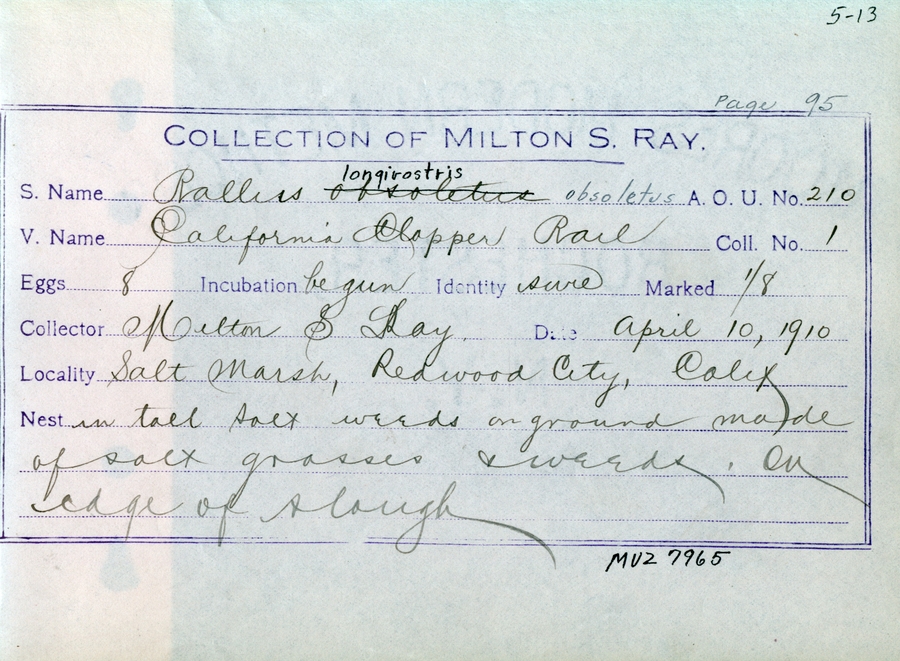 5-13
Page 95
COLLECTION OF MILTON S. RAY.
longirostris
S. Name Rallus obsoletus obsoletus A. O. U. No. 210
V. Name California Clapper Rail Coll. No. 1
Eggs 8 Incubation begun Identity sure Marked 1/8
Collector Milton S Ray. Date April 10, 1910
Locality Salt Marsh, Redwood City, Calif
Nest in tall salt weeds on ground made
of salt grasses & weeds. On
edge of slough
MVZ 7965